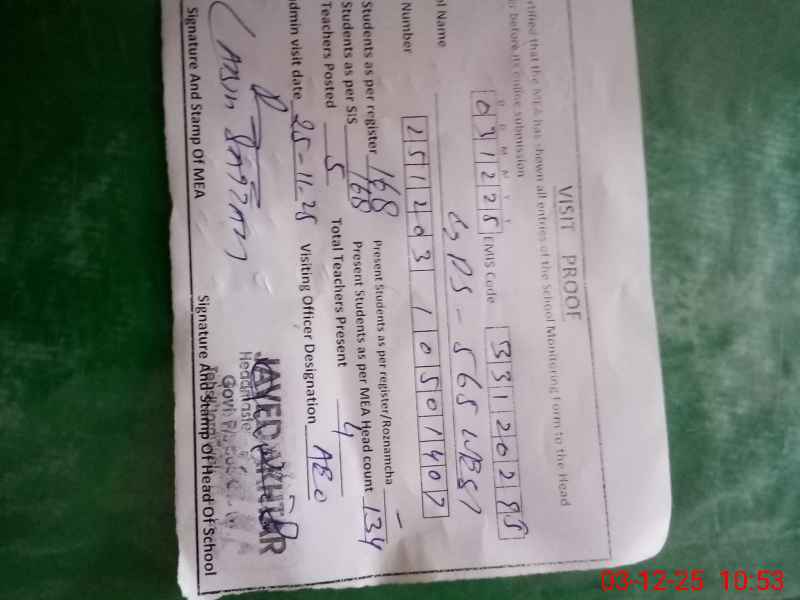 VISIT PROOF
rtified that the MEA has shown all entries of the School Monitoring Form to the Head
before its online submission
D D M M Y Y
031225 EMIS Code 33120285
ol Name GPS - 565
Number 251203 10501407
Students as per register 168 Present Students as per register/Roznamcha -
Students as per SIS 168 Present Students as per MEA Head count 134
Teachers Posted 5 Total Teachers Present 4
dmin visit date 25-11-25 Visiting Officer Designation AEO
JAVED AKHTAR
Headmaste
Govt
Signature And Stamp Of MEA Signature And Stamp Of Head Of School
03-12-25 10:53